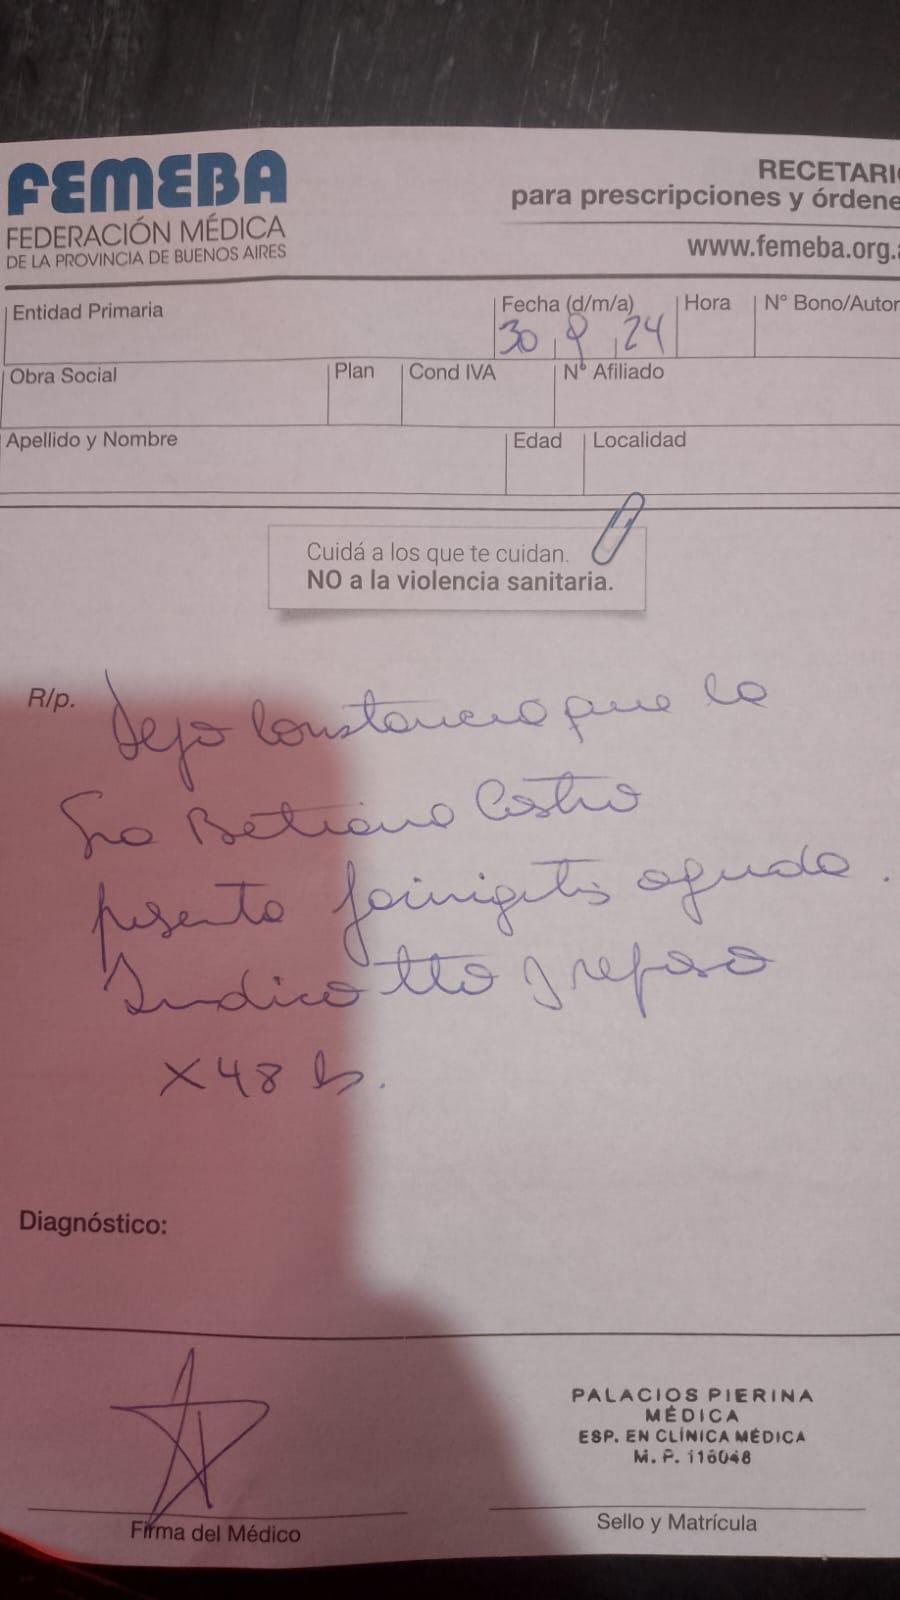 FEMEBA
FEDERACIÓN MÉDICA
DE LA PROVINCIA DE BUENOS AIRES
RECETARIO
para prescripciones y órdenes
www.femeba.org.a
Entidad Primaria
Fecha (d/m/a)
30 9 24
Hora
N° Bono/Autor
Obra Social
Plan
Cond IVA
N° Afiliado
Apellido y Nombre
Edad
Localidad
Cuidá a los que te cuidan.
NO a la violencia sanitaria.
R/p. Dejo constancia que la
Sra Betiana Castro
presenta faringitis aguda.
Indico tto y reposo
x 48 hs.
Diagnóstico:
Firma del Médico
PALACIOS PIERINA
MÉDICA
ESP. EN CLÍNICA MÉDICA
M. P. 116048
Sello y Matrícula